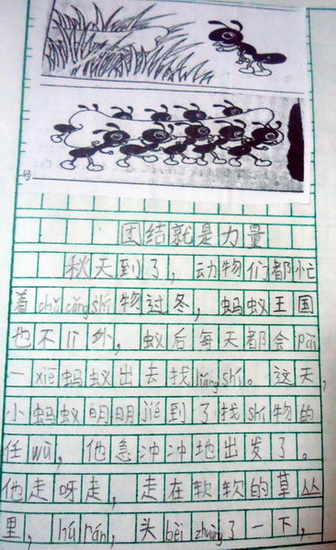 号
团结就是力量
秋天到了，动物们都忙
着chǔ cáng shí物过冬，蚂蚁王国
也不lì外，蚁后每天都会pài
一xiē蚂蚁出去找liáng shí。这天，
小蚂蚁明明jiē到了找shí物的
任wù，他急冲冲地出发了。
他走呀走，走在软软的草丛
里，hū rán，头bèi zhuàng了一下，